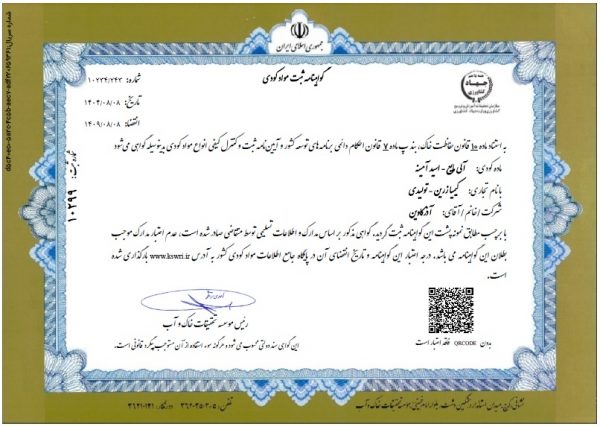 جمهوری اسلامی ایران
گواهینامه ثبت مواد کودی
جهاد
کشاورزی
شماره: ۱۰۲۳۴/۲۴۳
تاریخ: ۱۴۰۴/۰۸/۰۸
انقضاء: ۱۴۰۹/۰۸/۰۸
شماره ثبت: ۱۰۲۹۹
به استناد ماده ۱۰ قانون حفاظت خاک، بند پ ماده ۷ قانون احکام دائمی برنامه های توسعه کشور و آیین نامه ثبت و کنترل کیفی انواع مواد کودی بدینوسیله گواهی می شود
ماده کودی: آلی مایع - اسید آمینه
با نام تجاری: کیمیازرین - تولیدی
شرکت/خانم / آقای: آذرکاوین
با برچسب مطابق نمونه پشت این گواهینامه ثبت گردید. گواهی مذکور بر اساس مدارک و اطلاعات تسلیمی توسط متقاضی صادر شده است، عدم اعتبار مدارک موجب
بطلان این گواهینامه می باشد. درجه اعتبار این گواهینامه و تاریخ انقضای آن در پایگاه جامع اطلاعات مواد کودی کشور به آدرس www.kswri.ir بارگذاری شده
است.
رئیس موسسه تحقیقات خاک و آب
بدون QRCODE فاقد اعتبار است
این گواهی سند دولتی محسوب می شود و هرگونه سوء استفاده از آن مستوجب پیگرد قانونی است.
نشانی: کرج، میدان استاندارد، مشکین دشت، بلوار امام خمینی، موسسه تحقیقات خاک و آب
تلفن: ۵-۳۶۲۰۴۵۰۲ دورنگار:
شماره سریال: